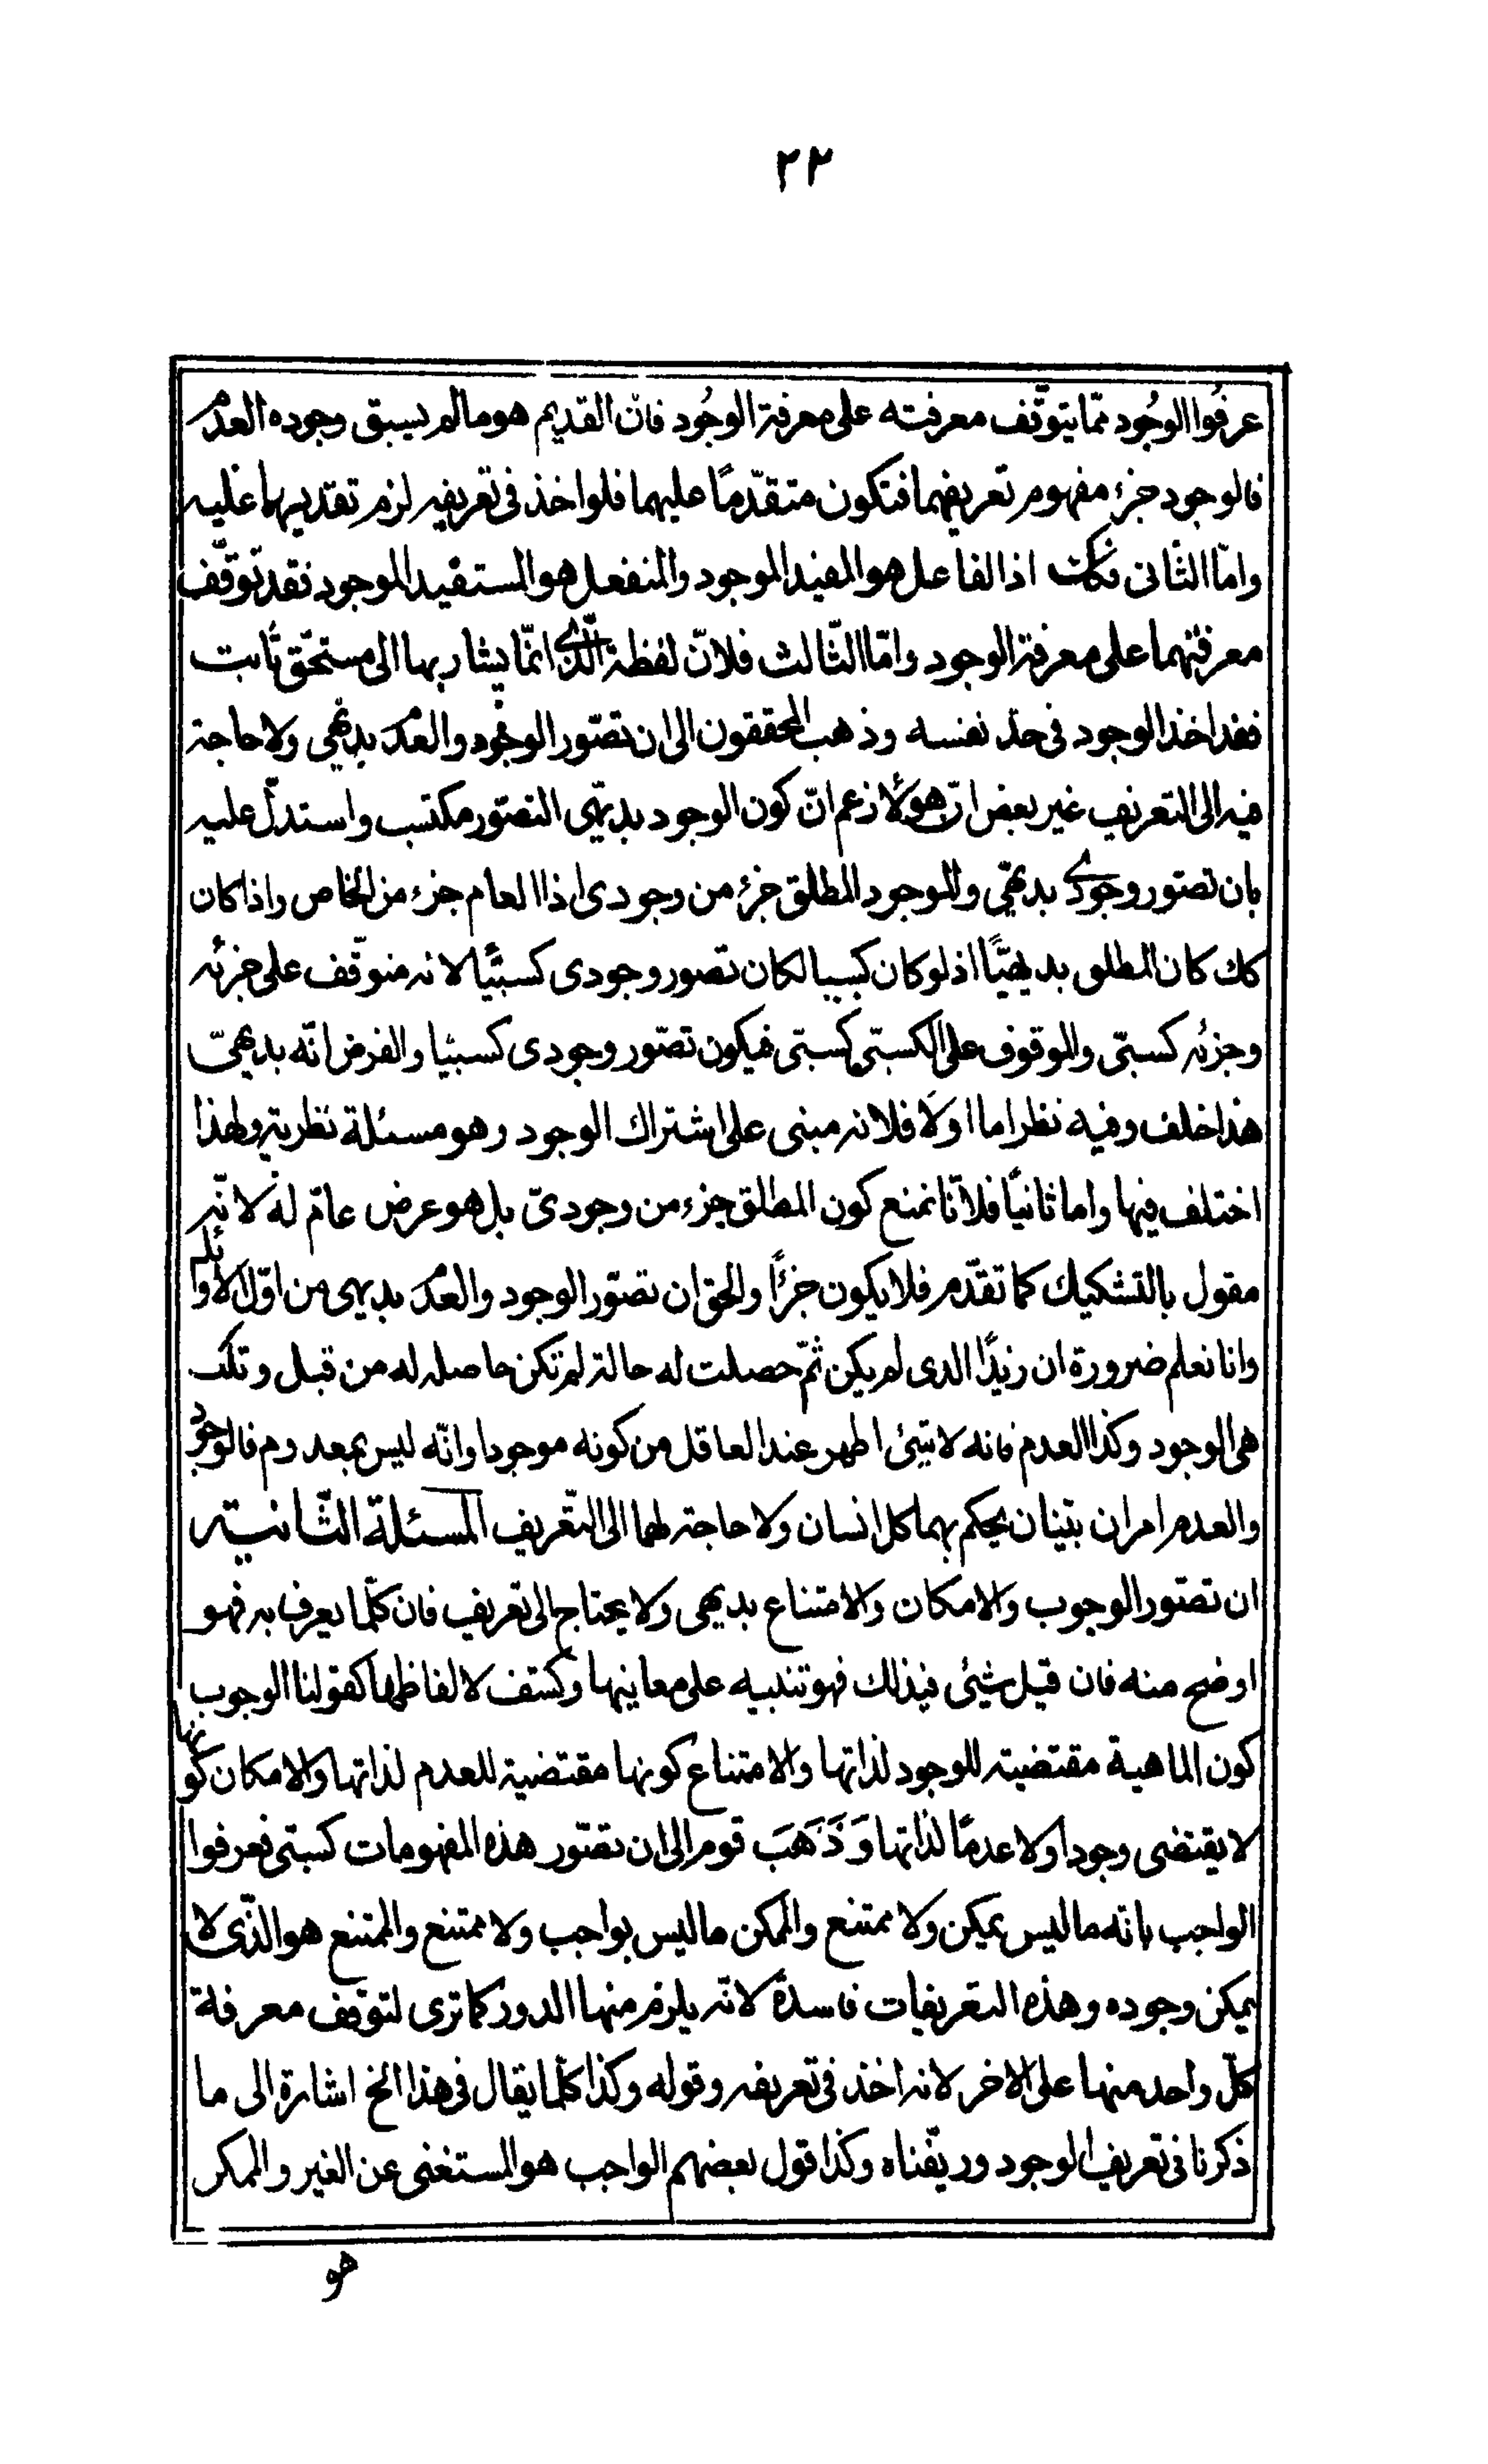 ٢٢
عرفوا الوجود مما يتوقّف معرفته على معرفة الوجود فان القديم هو ما لم يسبق وجوده العدم
فالوجود جزء مفهوم تعريفهما فتكون متقدّمًا عليهما فلو اخذ فى تعريفه لزم تقديمهما عليه
وامّا الثانى فكك اذ الفاعل هو المفيد الموجود والمنفعل هو المستفيد الموجود فقد توقّف
معرفتهما على معرفة الوجود وامّا الثّالث فلانّ لفظة الّذى انّما يشار بها الى مستحقّ ثابت
فقد اخذ الوجود فى حدّ نفسه وذهب المحققون الى ان تصّور الوجود والعدم بديهى ولا حاجة
فيه الى التعريف غير بعض ان هؤلا زعم انّ كون الوجود بديهى التصّور مكتسب واستدلّ عليه
بان تصّور وجودى بديهىّ والوجود المطلق جزء من وجودى اذ العام جزء من الخاص واذا كان
كك كان المطلق بديهيًّا اذ لو كان كسبيا لكان تصور وجودى كسبيّا لانه متوقّف على جزئه
وجزئه كسبىّ والموقوف على الكسبىّ كسبى فيكون تصّور وجودى كسبيّا والفرض انّه بديهىّ
هذا خلف وفيه نظر اما اولا فلانه مبنى على اشتراك الوجود وهو مسئلة نظرية ولهذا
اختلف فيها واما ثانيًا فلانّا نمنع كون المطلق جزء من وجودىّ بل هو عرض عامّ له لانّه
مقول بالتشكيك كما تقدّم فلا يكون جزءًا والحق ان تصّور الوجود والعدم بديهى من اوّل الاوائل
وانا نعلم ضرورة ان زيدًا الذى لم يكن ثمّ حصلت له حالة لم تكن حاصله له من قبل وتلك
هى الوجود وكذا العدم فانه لا شئ اظهر عند العاقل من كونه موجودا وانّه ليس بمعدوم فالوجود
والعدم امران بيّنان يحكم بهما كل انسان ولا حاجة لهما الى التّعريف المسئلة الثّانية
ان تصّور الوجوب والامكان والامتناع بديهى ولا يحتاج الى تعريف فان كلّما يعرف به فهو
اوضح منه فان قيل شيئى فيذلك فهو تنبيه على معانيها وكشف لالفاظها كقولنا الوجوب
كون الماهية مقتضية للوجود لذاتها والامتناع كونها مقتضية للعدم لذاتها والامكان كونها
لا يقتضى وجودا ولا عدمًا لذاتها وَ ذَهَبَ قوم الى ان تصّور هذه المفهومات كسبى فعرفوا
الواجب بانّه ما ليس بممكن ولا ممتنع والممكن ما ليس بواجب ولا ممتنع والممتنع هو الذّى لا
يمكن وجوده وهذه التعريفات فاسدة لانّه يلزم منها الدور كما ترى لتوقف معرفة
كلّ واحد منها على الاخر لانه اخذ فى تعريفه وقوله وكذا كلّما يقال فى هذا الخ اشارة الى ما
ذكرنا فى تعريف الوجود وريّفناه وكذا قول بعضهم الواجب هو المستغنى عن الغير والممكن
هو